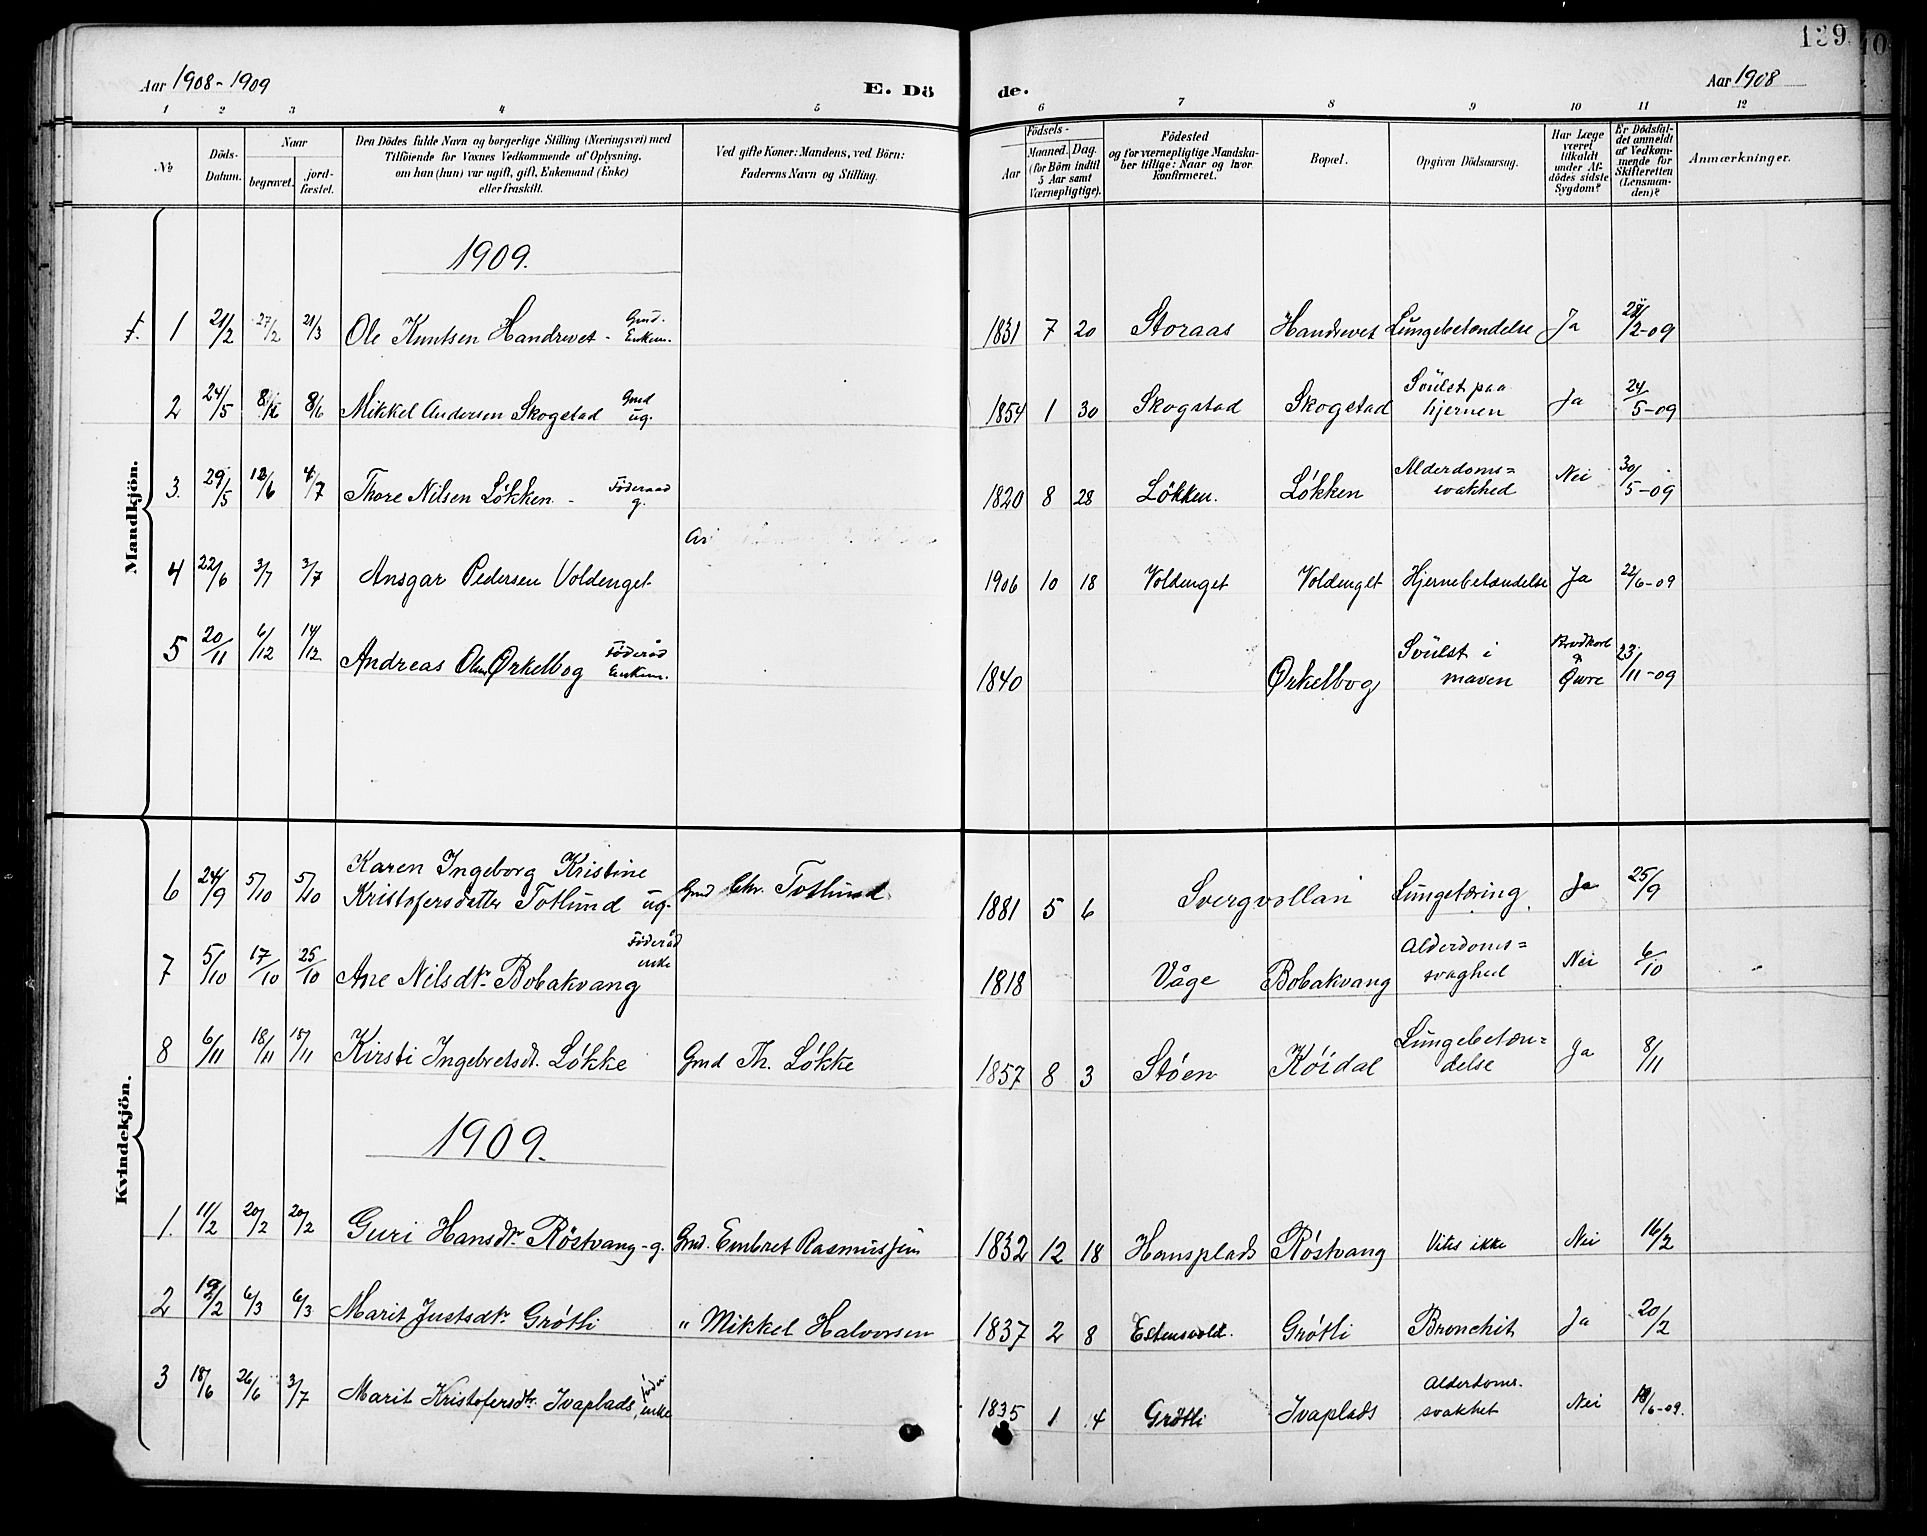 139
Aar 1908-1909
E. Dö de.
Aar 1908
1 2 3 4 5 6 7 8 9 10 11 12
№
Döds-Datum.
Naar
begravet.
jordfæstet.
Den Dödes fulde Navn og borgerlige Stilling (Næringsvei) med
Tilföiende for Voxnes Vedkommende af Oplysning,
om han (hun) var ugift, gift, Enkemand (Enke)
eller fraskilt.
Ved gifte Koner: Mandens, ved Börn:
Faderens Navn og Stilling.
Födsels-
Aar
Maaned. Dag.
(for Börn indtil
5 Aar samt
Værnepligtige).
Födested
og for værnepligtige Mandskaber tillige: Naar og hvor
konfirmeret.
Bopæl.
Opgiven Dödsaarsag.
Har Læge
været
tilkaldt
under Afdödes sidste
Sygdom?
Er Dödsfaldet anmeldt
af Vedkommende for
Skifteretten
(Lensmanden)?
Anmærkninger.
Mandkjön.
1909.
1 21/2 27/2 21/3 Ole Knutsen Handrevet - Gmd. Enkem. 1831 7 20 Storaas Handrevet Lungebetændelse Ja 22/2-09
2 24/5 8/6 8/6 Mikkel Andersen Skogstad Gmd ug. 1854 1 30 Skogstad Skogstad Svulst paa hjernen Ja 24/5-09
3. 29/5 12/6 4/7 Thore Nilsen Løkken - Föderaad g. 1820 8 28 Løkken. Løkken Alderdoms=svakhed Nei 30/5-09
4 22/6 3/7 3/7 Ansgar Pedersen Voldenget 1906 10 18 Voldenget Voldenget Hjernebetændelse Ja 22/6-09
5 20/11 6/12 14/12 Andreas Olsen Ørkelbog Föderåd Enkem. 1840 Ørkelbog Svulst i maven Qvre 23/11-09
Kvindekjön.
6 24/9 5/10 5/10 Karen Ingeborg Kristine
Kristofersdatter Totlund ug. Gmd Chr. Totlund 1881 5 6 Svergvollan Lungetæring. Ja 25/9
7 5/10 17/10 25/10 Ane Nilsdtr. Bobakvang Föderåd enke 1818 Våge Bobakvang Alderdoms=svaghed Nei 6/10
8 6/11 18/11 18/11 Kirsti Ingebretsdt. Løkke Gmd Th. Løkke 1857 8 3 Støen Köidal Lungebetæn=delse Ja 8/11
1909.
1. 11/2 20/2 20/2 Guri Hansdtr. Röstvang - g. Gmd. Embret Rasmussen 1832 12 18 Hansplads Röstvang Vites ikke Nei 16/2
2 19/2 6/3 6/3 Marit Justsdtr. Grøtli " Mikkel Halvorsen 1837 2 8 Estensvold. Grøtli Bronchit Ja 20/2
3 18/6 26/6 3/7 Marit Kristofersdtr. Ivaplads, föder. enke 1835 1 4 Grøtli Ivaplads Alderdoms.svakhet Nei 18/6-09.